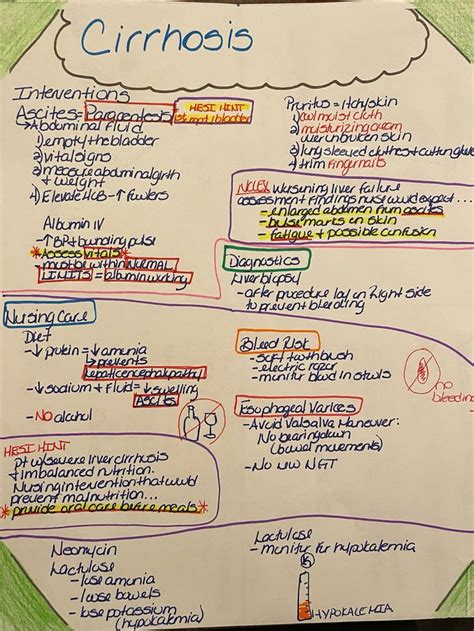 Cirrhosis
Interventions
Ascites = Paracentesis
HESI HINT
*empty bladder
↳Abdominal fluid
1) empty the bladder
2) vital signs
3) measure abdominal girth
+ weight
4) Elevate HOB - ↑ Fowlers
Albumin IV
- ↑ BP + bounding pulse
*Assess vitals*
- must be within NORMAL
LIMITS = albumin working
Pruritus = Itchy skin
1) cool moist cloth
2) moisturizing cream
over unbroken skin
3) long sleeved clothes + cotton gloves
4) trim fingernails
NCLEX Worsening liver failure
assessment findings nurse would expect...
- enlarged abdomen from ascites
- bruise marks on skin
- fatigue + possible confusion
Diagnostics
Liver biopsy
- after procedure lay on right side
to prevent bleeding
Nursing Care
Diet
- ↓ protein = ↓ amonia
↳ prevents
hepaticencephalopathy
- ↓ sodium + fluid = ↓ swelling
ASCITES
- NO alcohol
Bleed Risk
- soft toothbrush
- electric razor
- monitor blood in stools
no
bleeding
Esophageal Varices
- Avoid Valsalva Maneuver:
No bearing down
(bowel movements)
- No NGT
HESI HINT
Pt w/ severe liver cirrhosis
+ imbalanced nutrition.
Nursing intervention that would
prevent malnutrition...
*provide oral care before meals*
Neomycin
Lactulose
- lose amonia
- lose bowels
- lose potassium
(hypokalemia)
Lactulose
- monitor for hypokalemia
HYPOKALEMIA